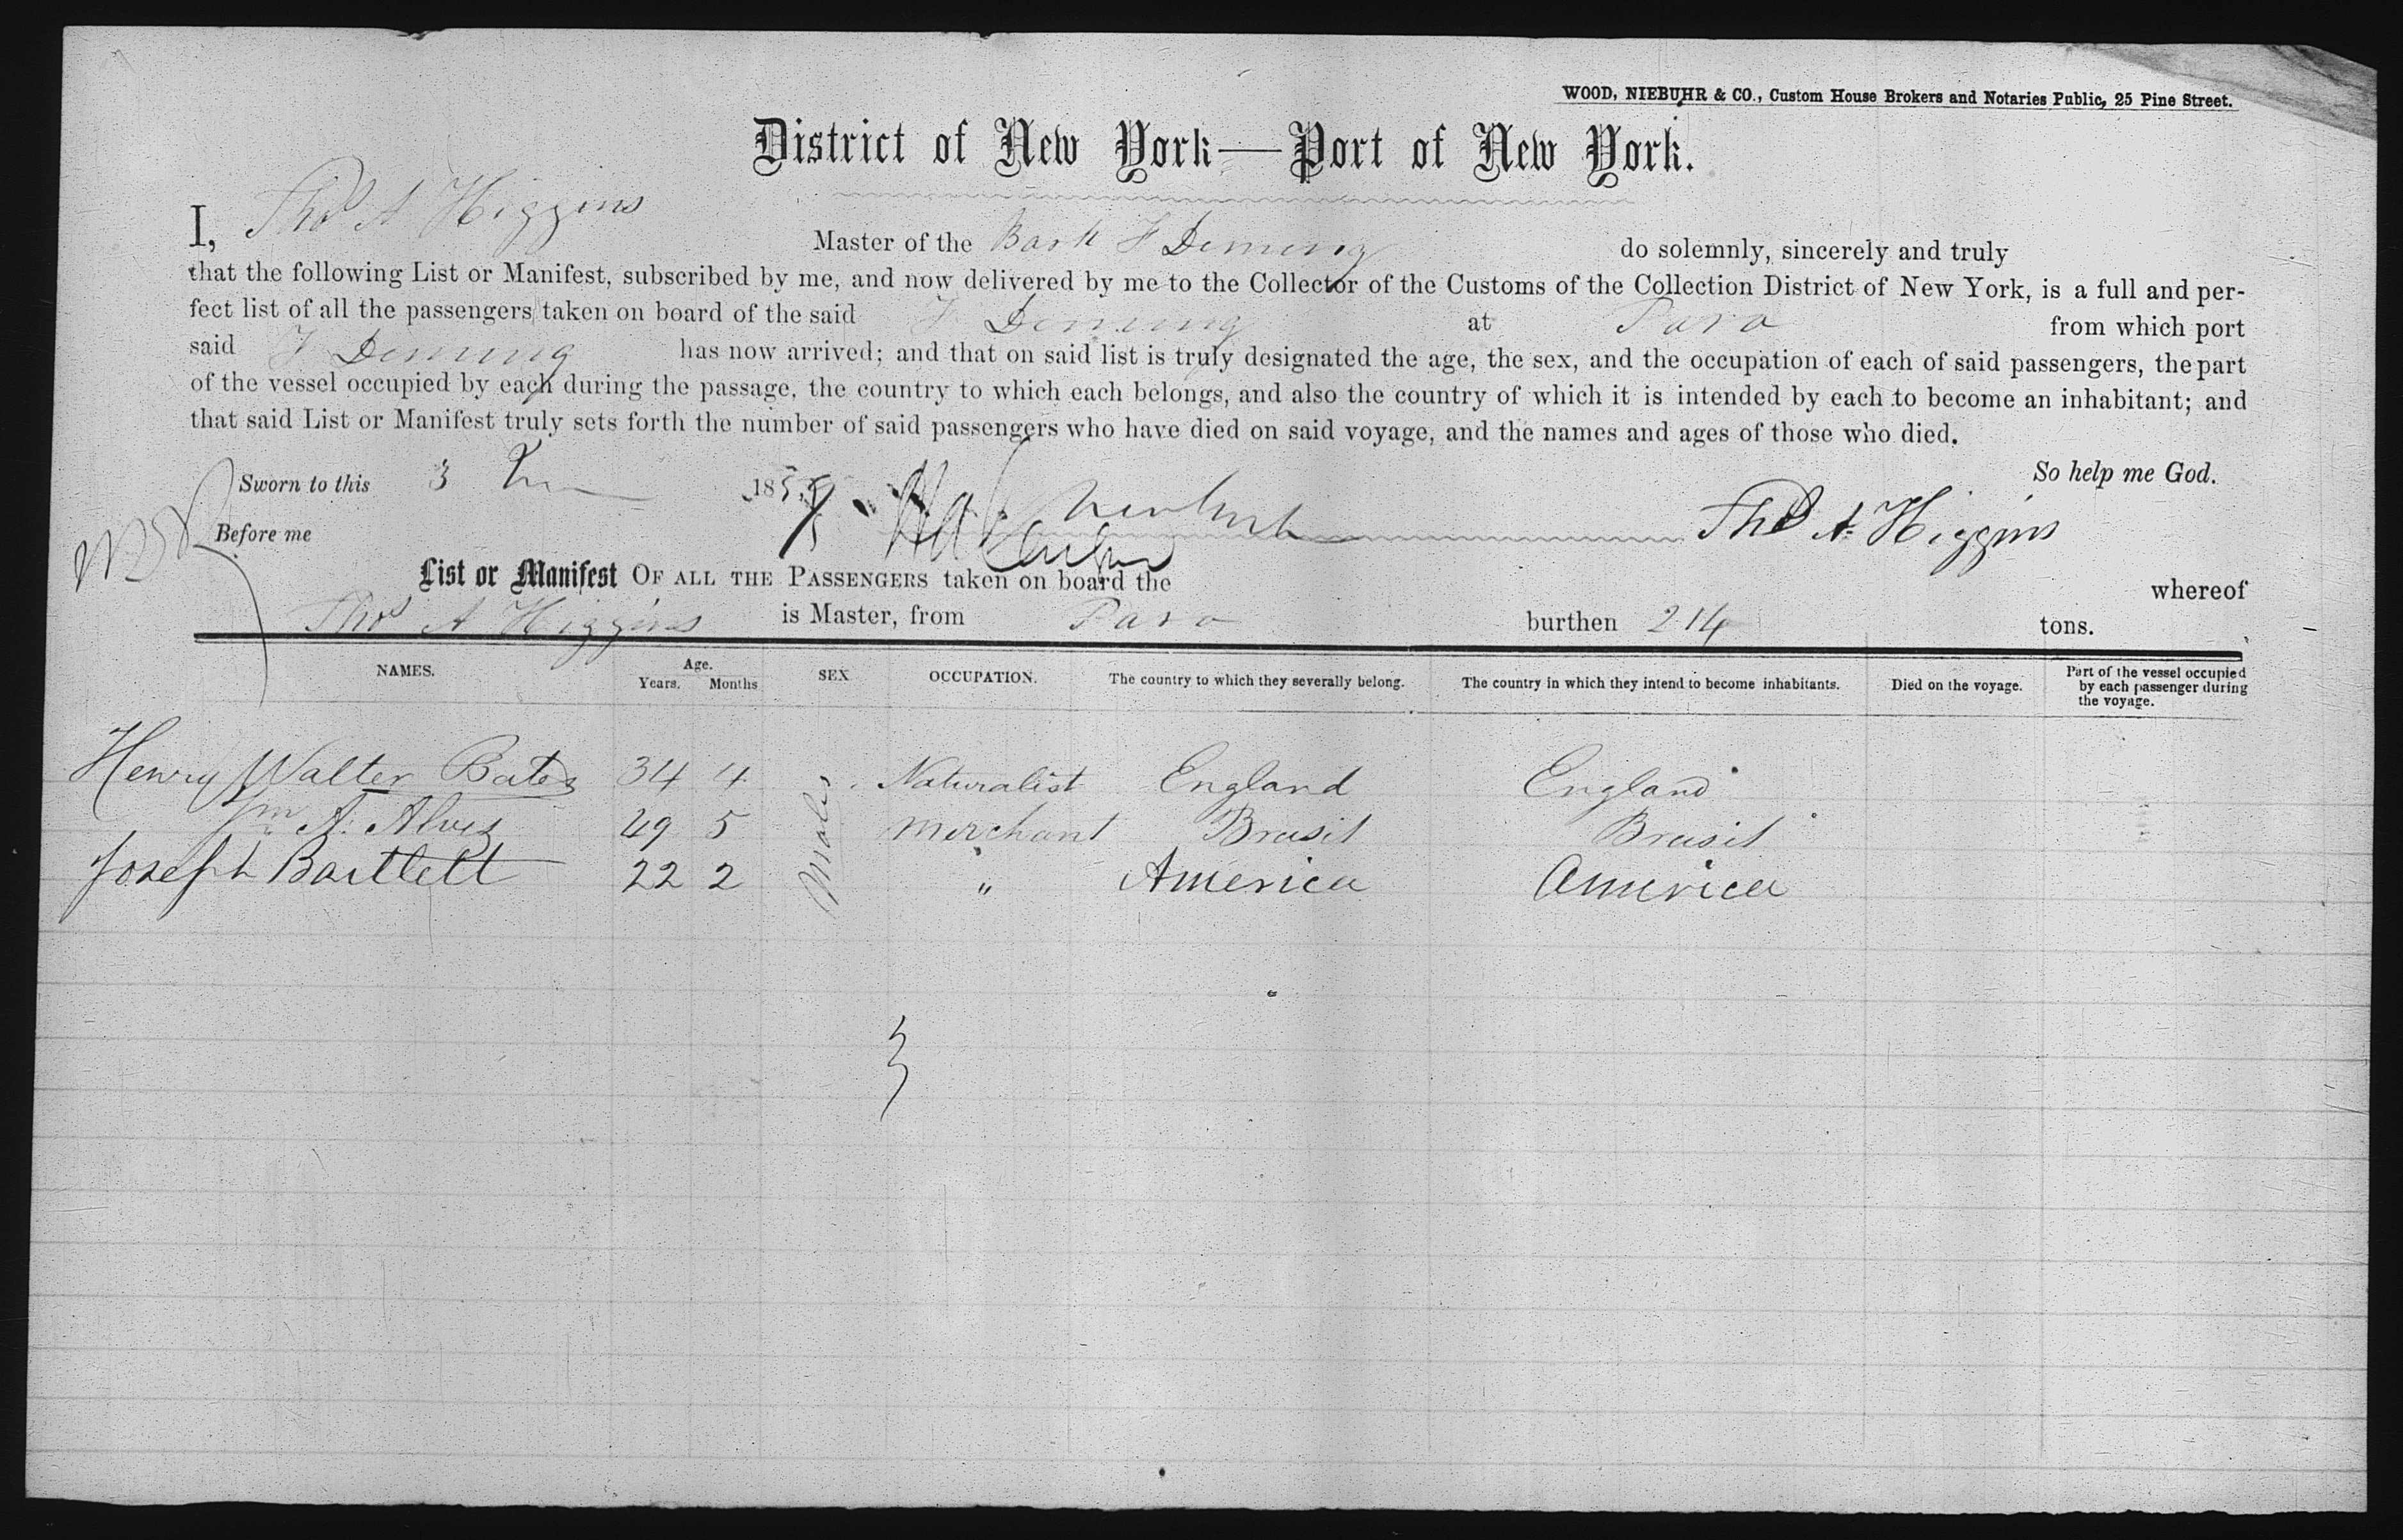 WOOD, NIEBUHR & CO., Custom House Brokers and Notaries Public, 25 Pine Street.
District of New York—Port of New York.
I, Thos A Higgins Master of the Bark F Deming do solemnly, sincerely and truly
that the following List or Manifest, subscribed by me, and now delivered by me to the Collector of the Customs of the Collection District of New York, is a full and per-
fect list of all the passengers taken on board of the said F Deming at Para from which port
said F Deming has now arrived; and that on said list is truly designated the age, the sex, and the occupation of each of said passengers, the part
of the vessel occupied by each during the passage, the country to which each belongs, and also the country of which it is intended by each to become an inhabitant; and
that said List or Manifest truly sets forth the number of said passengers who have died on said voyage, and the names and ages of those who died.
So help me God.
Sworn to this 3 1859
Thos A. Higgins
Before me
List or Manifest OF ALL THE PASSENGERS taken on board the whereof
Thos A Higgins is Master, from Para burthen 214 tons.
NAMES. Age. Years. Months SEX OCCUPATION. The country to which they severally belong. The country in which they intend to become inhabitants. Died on the voyage. Part of the vessel occupied by each passenger during the voyage.
Henry Walter Bates 34 4 Males Naturalist England England
A. Alves 49 5 Merchant Brasil Brasil
Joseph Bartlett 22 2 " America America